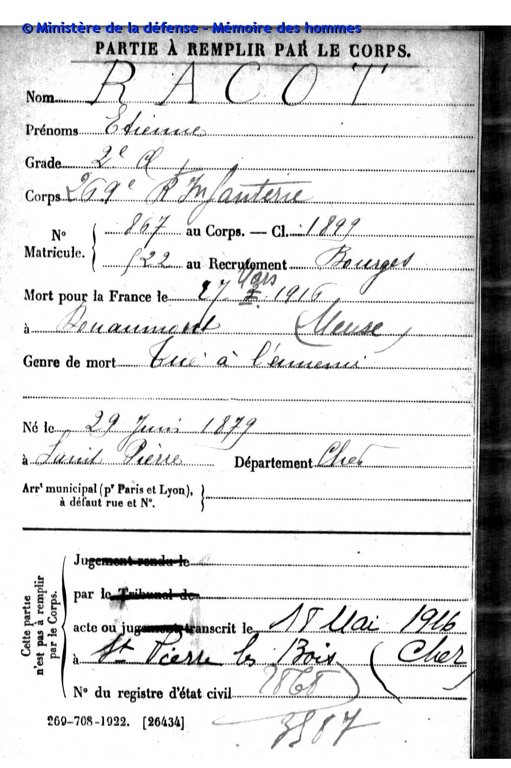 © Ministère de la défense - Mémoire des hommes
PARTIE À REMPLIR PAR LE CORPS.
Nom RACOT
Prénoms Etienne
Grade 2e Cl
Corps 269e Rt Infanterie
N° Matricule. 867 au Corps. — Cl. 1899
522 au Recrutement Bourges
Mort pour la France le 27 Mars 1916
à (Meuse)
Genre de mort Tué à l'ennemi
Né le 29 Juin 1879
à Saint Pierre Département Cher
Arrt municipal (pr Paris et Lyon), à défaut rue et N°.
Cette partie n'est pas à remplir par le Corps.
Jugement rendu le
par le Tribunal de
acte ou jugement transcrit le 18 Mai 1916
à St Pierre les Bois (Cher)
N° du registre d'état civil
269-708-1922. [26434]